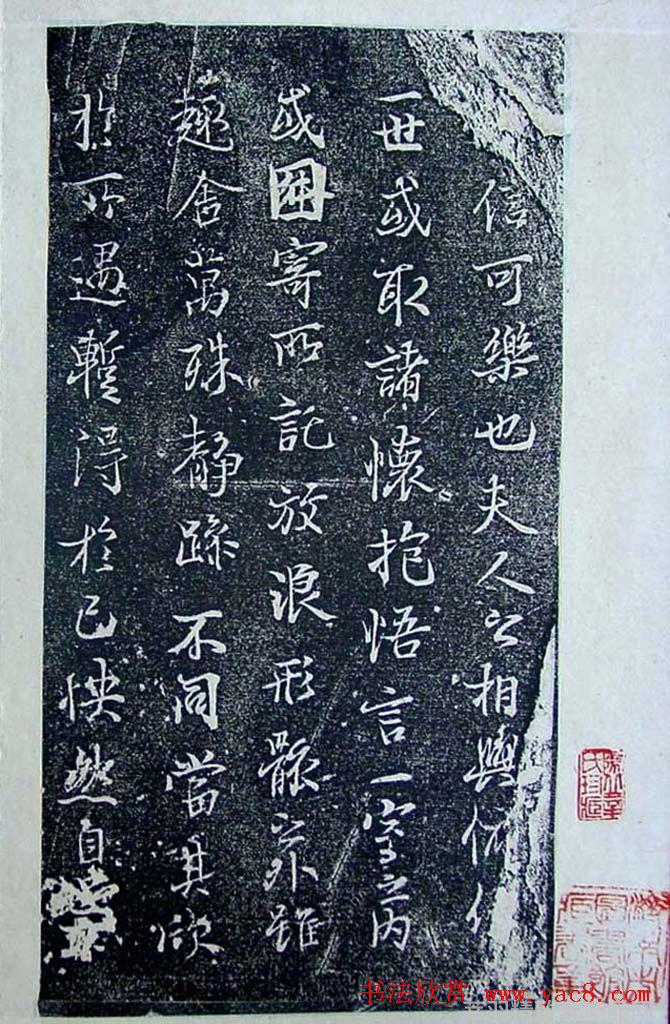 信可樂也夫人之相與俯仰
一世或取諸懷抱悟言一室之內
或因寄所託放浪形骸之外雖
趣舍萬殊靜躁不同當其欣
於所遇暫得於己怏然自
书法欣赏 www.yac8.com